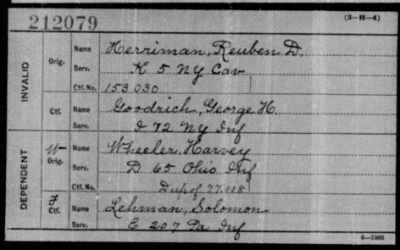 212079 (3-H-4)
INVALID
Orig. Name Herriman, Reuben D.
Serv. K 5 NY Cav
Ctf. No. 153030
Ctf. Name Goodrich, George H.
Serv. I 72 NY Inf
DEPENDENT
W Orig. Name Wheeler, Harvey
Serv. D 65 Ohio Inf
Ctf. No. Dup of
Ctf. Name Lehman, Solomon
Serv. E 207 Pa Inf